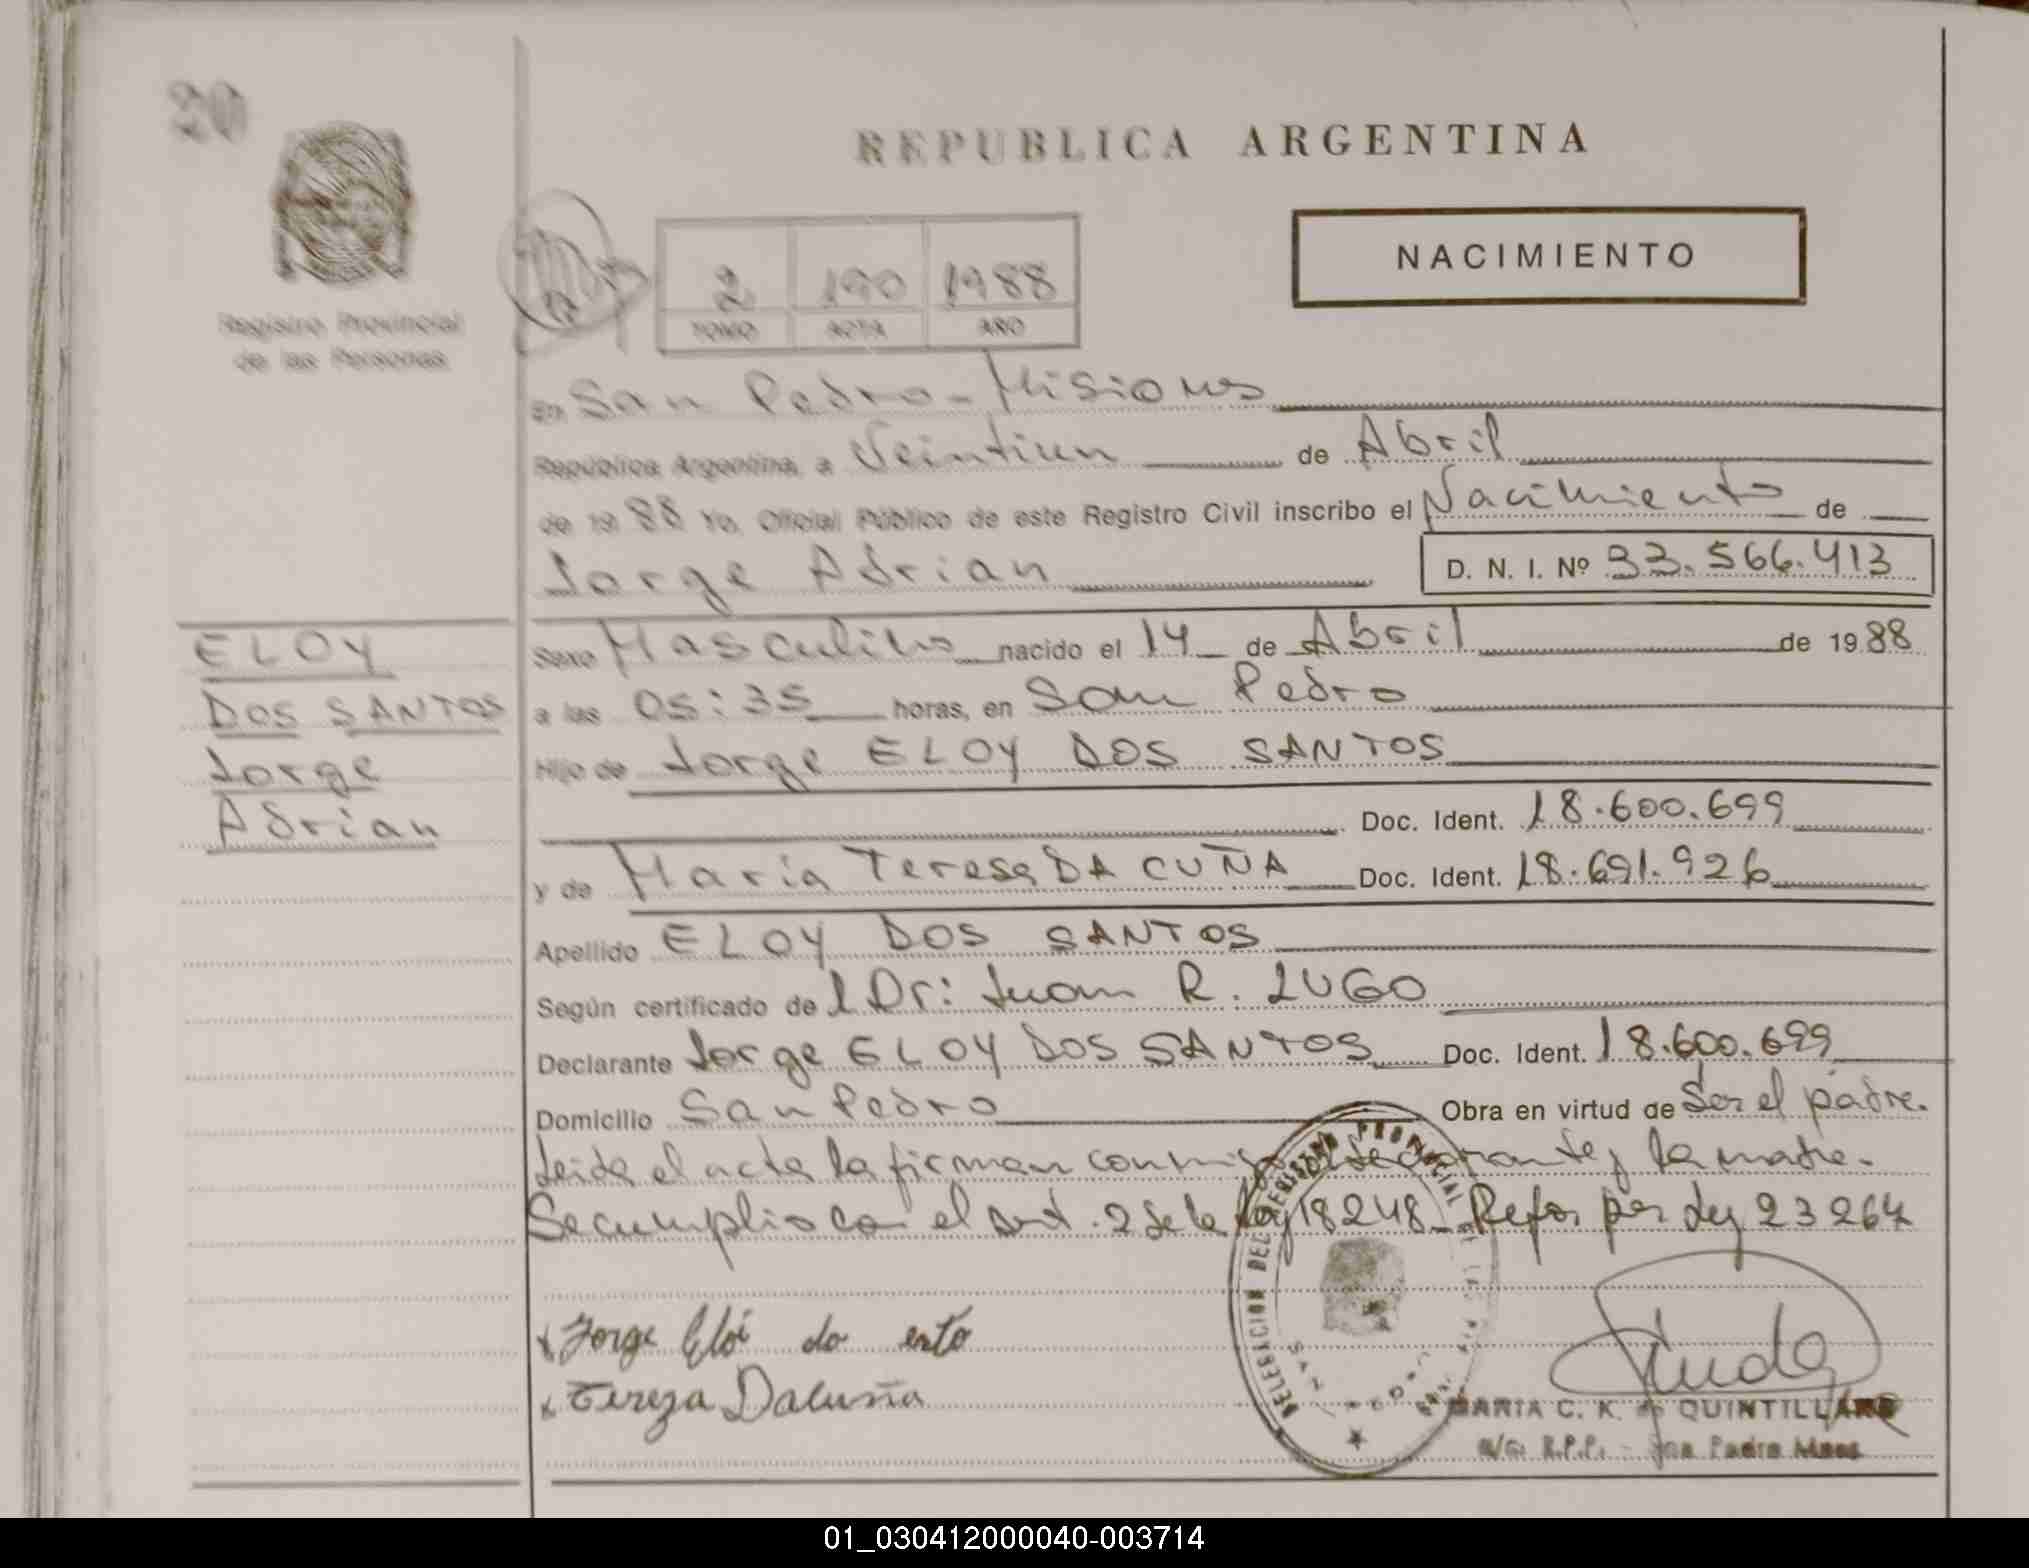 20
REPUBLICA ARGENTINA
NACIMIENTO
Registro Provincial
de las Personas
2 190 1988
TOMO ACTA AÑO
en San Pedro - Misiones
República Argentina, a Veintiun de Abril
de 19 88 Yo, Oficial Público de este Registro Civil inscribo el Nacimiento de
Jorge Adrian D. N. I. Nº 33.566.413
ELOY
DOS SANTOS
Jorge
Adrian
Sexo Masculino nacido el 14 de Abril de 19 88
a las 05:35 horas, en San Pedro
Hijo de Jorge ELOY DOS SANTOS
Doc. Ident. 18.600.699
y de María Teresa DA CUÑA Doc. Ident. 18.691.926
Apellido ELOY DOS SANTOS
Según certificado de l Dr: Juan R. LUGO
Declarante Jorge ELOY DOS SANTOS Doc. Ident. 18.600.699
Domicilio San Pedro Obra en virtud de Ser el padre.
Leida el acta la firman conmigo el declarante y la madre.
Se cumplio con el art. 2 de la Ley 18248 Refor por Ley 23264
x Jorge Eloi do
x Tereza Dacuña
DELEGACION DEL REGISTRO PROVINCIAL
MARIA C. K. de QUINTILLAN
01_030412000040-003714